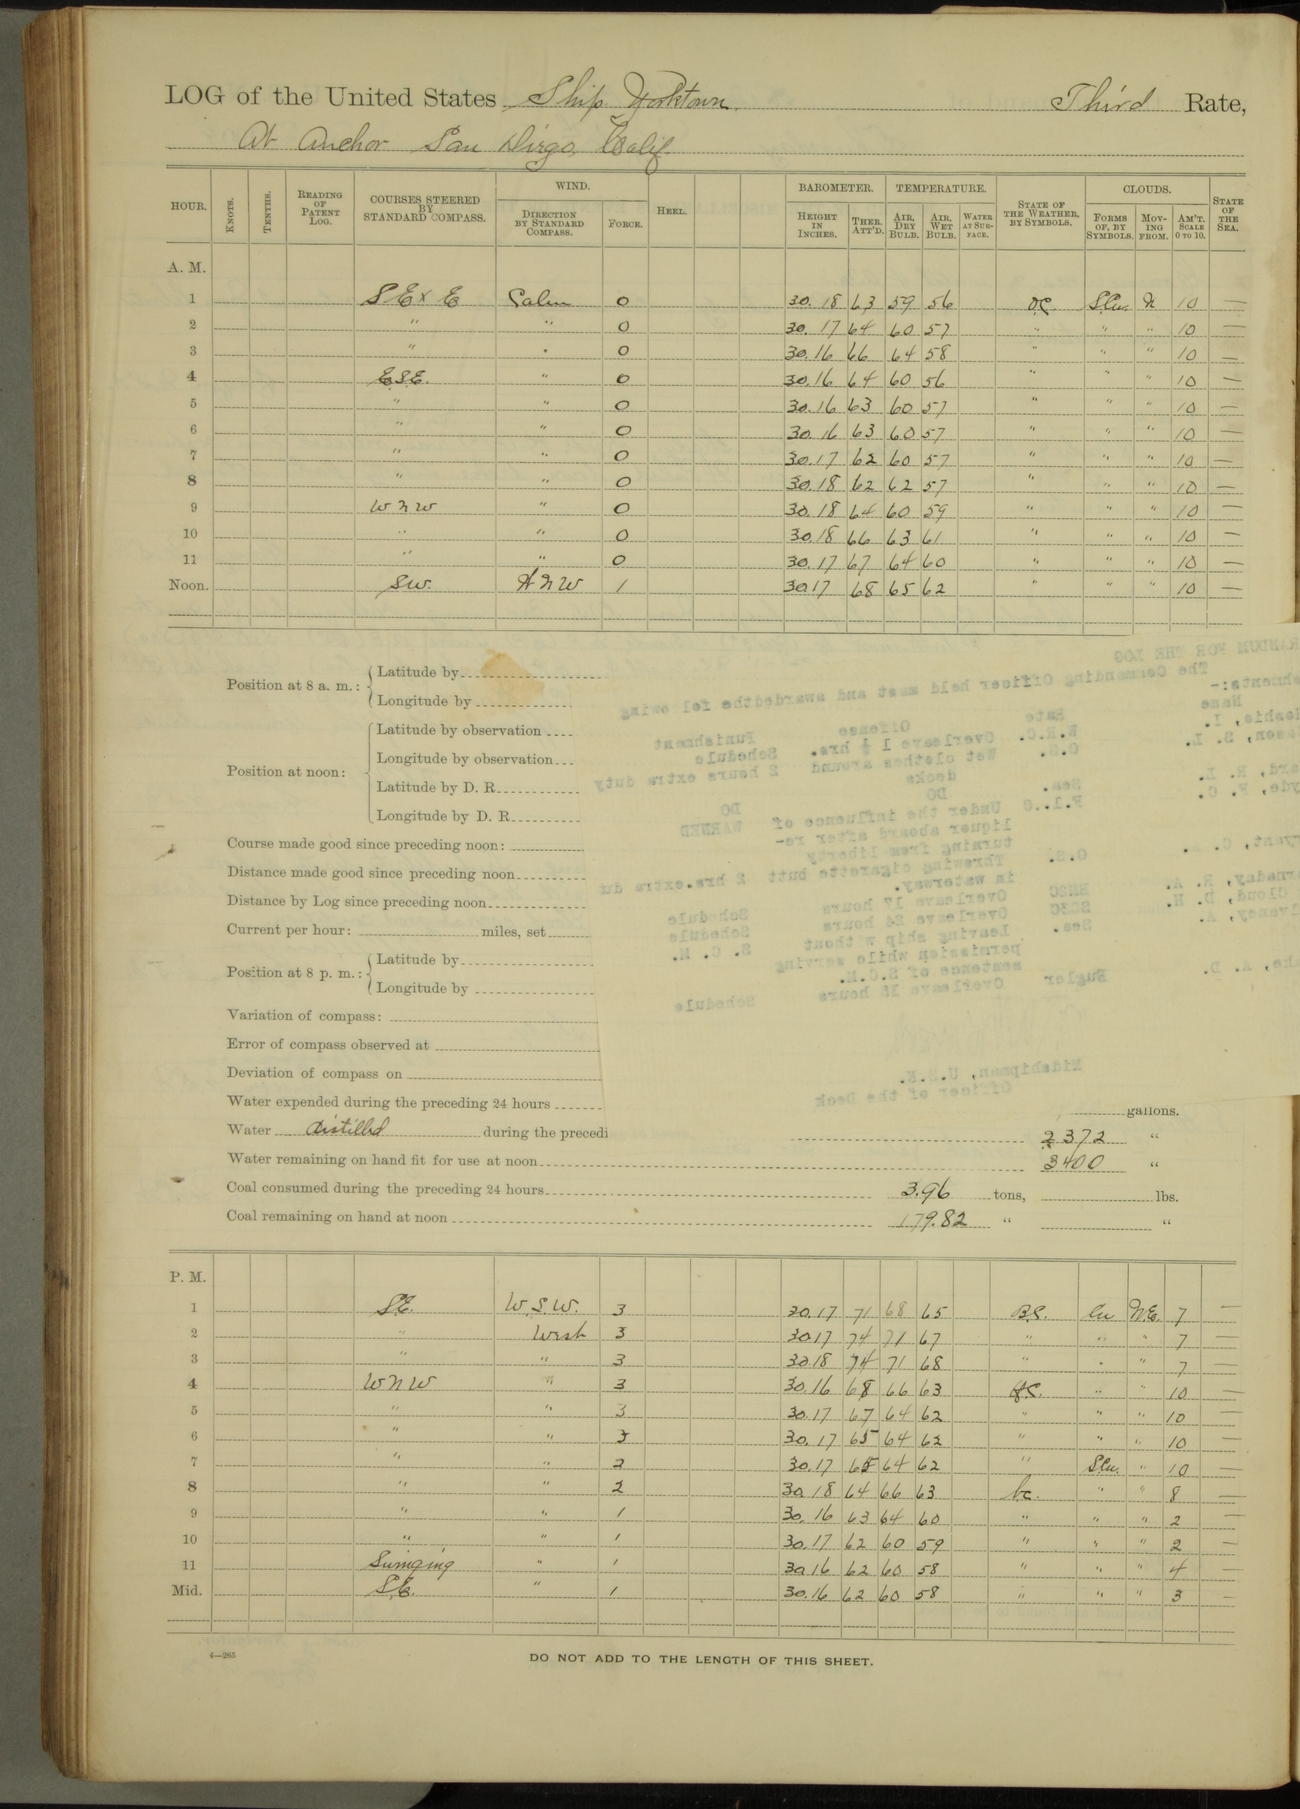 LOG of the United States Ship Yorktown. Third Rate,
At Anchor San Diego, Calif.
HOUR. KNOTS. TENTHS. READING OF PATENT LOG. COURSES STEERED BY STANDARD COMPASS. WIND. DIRECTION BY STANDARD COMPASS. FORCE. HEEL. BAROMETER. HEIGHT IN INCHES. THER. ATT'D. TEMPERATURE. AIR, DRY BULB. AIR, WET BULB. WATER AT SURFACE. STATE OF THE WEATHER, BY SYMBOLS. CLOUDS. FORMS OF, BY SYMBOLS. MOVING FROM. AM'T. SCALE 0 TO 10. STATE OF THE SEA.
A. M.
1 SE x E Calm 0 30.18 63 59 56 o.c. S.Cu. N 10 —
2 " " 0 30.17 64 60 57 " " " 10 —
3 " " 0 30.16 66 64 58 " " " 10 —
4 E.S.E. " 0 30.16 64 60 56 " " " 10 —
5 " " 0 30.16 63 60 57 " " " 10 —
6 " " 0 30.16 63 60 57 " " " 10 —
7 " " 0 30.17 62 60 57 " " " 10 —
8 " " 0 30.18 62 62 57 " " " 10 —
9 WNW " 0 30.18 64 60 59 " " " 10 —
10 " " 0 30.18 66 63 61 " " " 10 —
11 " " 0 30.17 67 64 60 " " " 10 —
Noon. SW. NW 1 30.17 68 65 62 " " " 10 —
Position at 8 a. m.: Latitude by
Longitude by
Position at noon: Latitude by observation
Longitude by observation
Latitude by D. R.
Longitude by D. R.
Course made good since preceding noon:
Distance made good since preceding noon
Distance by Log since preceding noon
Current per hour: miles, set
Position at 8 p. m.: Latitude by
Longitude by
Variation of compass:
Error of compass observed at
Deviation of compass on
Water expended during the preceding 24 hours gallons.
Water distilled during the precedi 2372 "
Water remaining on hand fit for use at noon 3400 "
Coal consumed during the preceding 24 hours 3.96 tons, lbs.
Coal remaining on hand at noon 179.82 " "
P. M.
1 SE. W.S.W. 3 30.17 71 68 65 B.C. Cu N.E. 7 —
2 " West 3 30.17 74 71 67 " " " 7 —
3 " " 3 30.18 74 71 68 " " " 7 —
4 WNW " 3 30.16 68 66 63 " " 10 —
5 " " 3 30.17 67 64 62 " " " 10 —
6 " " 3 30.17 65 64 62 " " " 10 —
7 " " 2 30.17 65 64 62 " S.Cu. " 10 —
8 " " 2 30.18 64 66 63 bc. " " 8 —
9 " " 1 30.16 63 64 60 " " " 2 —
10 " " 1 30.17 62 60 59 " " " 2 —
11 Swinging " 1 30.16 62 60 58 " " " 4 —
Mid. S.E. " 1 30.16 62 60 58 " " " 3 —
4—265
DO NOT ADD TO THE LENGTH OF THIS SHEET.